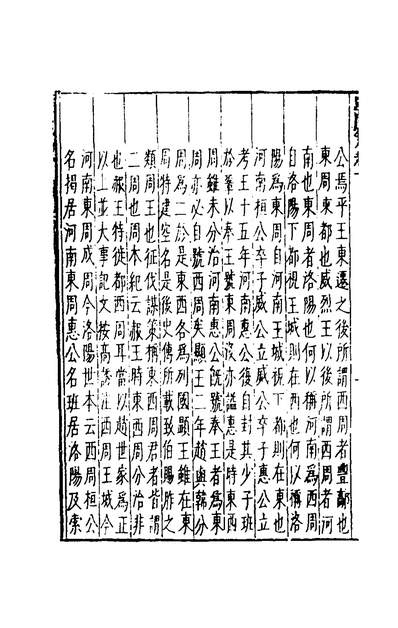 公焉平王東遷之後所謂西周者豐鄗也
東周東都也威烈王以後所謂西周者河
南也東周者洛陽也何以稱河南爲西周
自洛陽下都視王城則在西也何以稱洛
陽爲東周自河南王城視下都則在東也
河南桓公卒子威公立威公卒子惠公立
考王十五年河南惠公復自封其少子班
於鞏以奉王號東周惠公沒亦謚惠是時東西
周雖未分治河南惠公旣號奉王者爲東
周亦必自號西周矣顯王二年趙與韓分
周爲二於是東西各爲列國顯王雖在東
周特建空名是後史傳所載致伯賜胙之
類周王也征伐謀策稱東西周君者皆謂
二周也周本紀云赧王時東西周分治非
也赧王特徙都西周耳當以趙世家爲正
以上並大事記文按高誘注西周王城今
河南東周成周今洛陽世本云西周桓公
名揭居河南東周惠公名班居洛陽及索